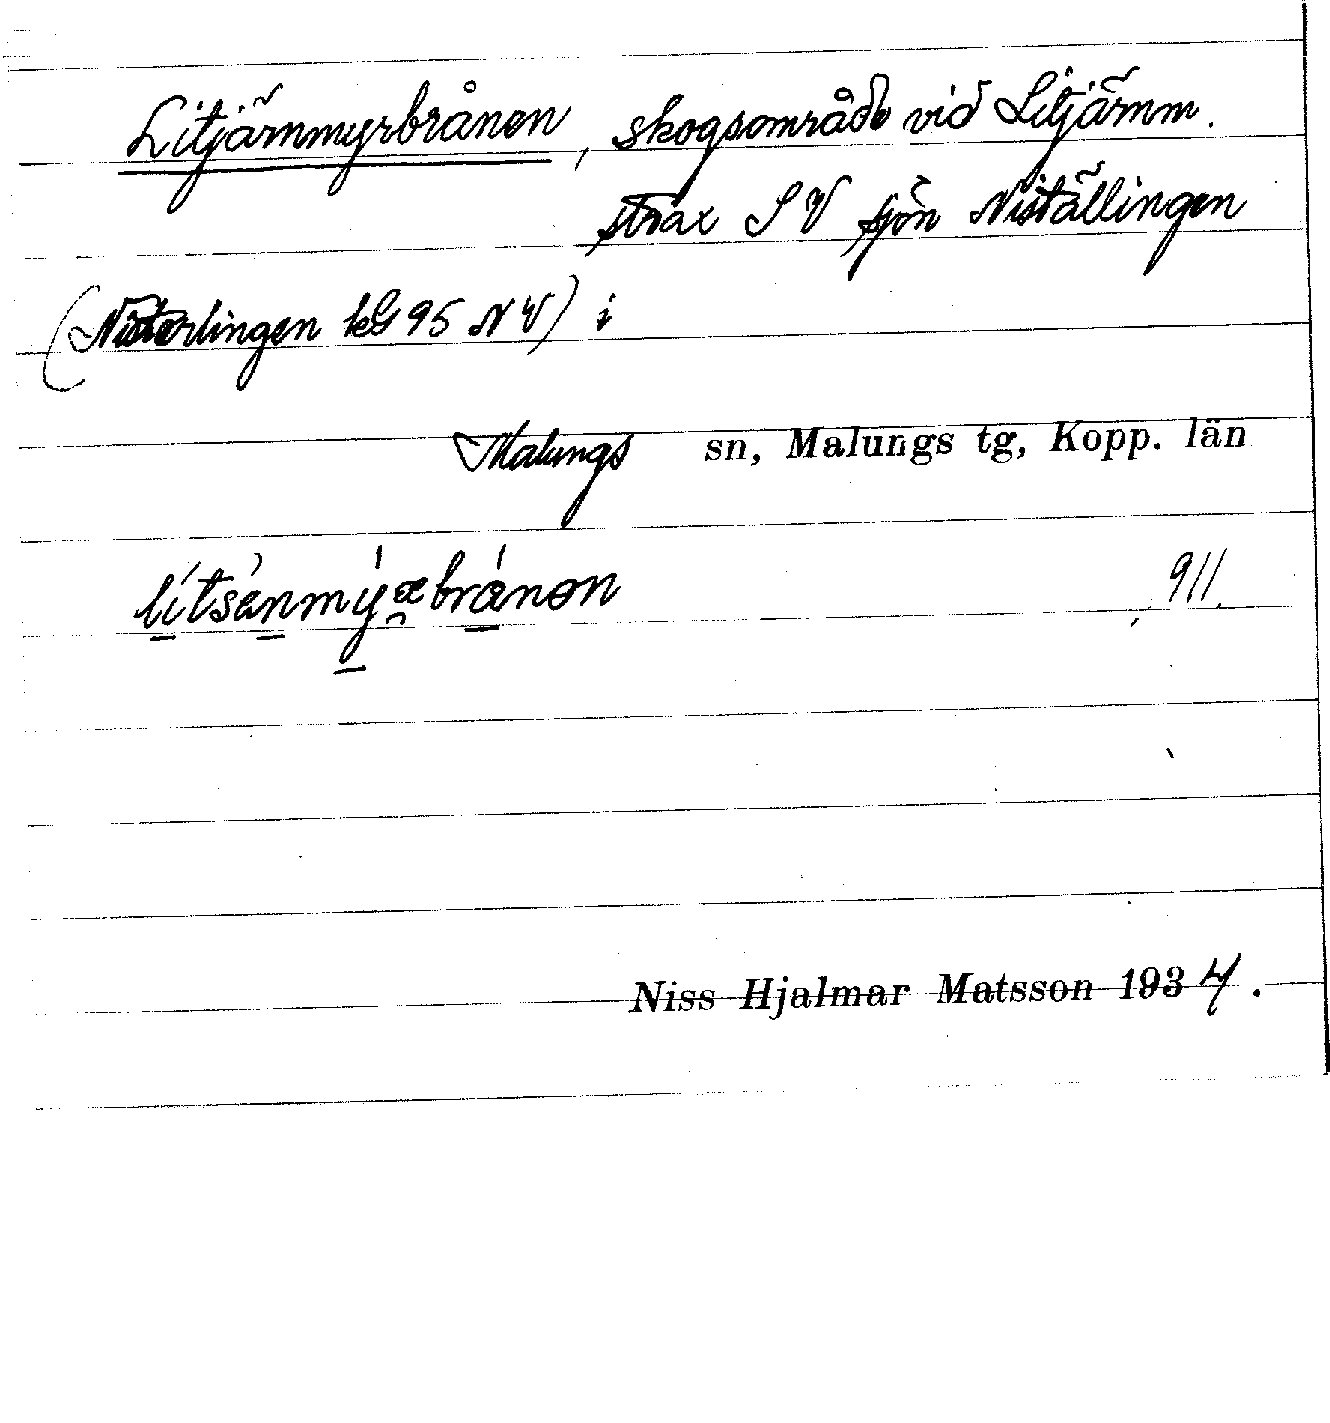 Litjärnmyrbrånen, skogsområde vid Litjärnm.
strax SV sjön Niställingen
(Nisterlingen kG 95 NV) i
Malungs sn, Malungs tg, Kopp. län
911.
Niss Hjalmar Matsson 1934.